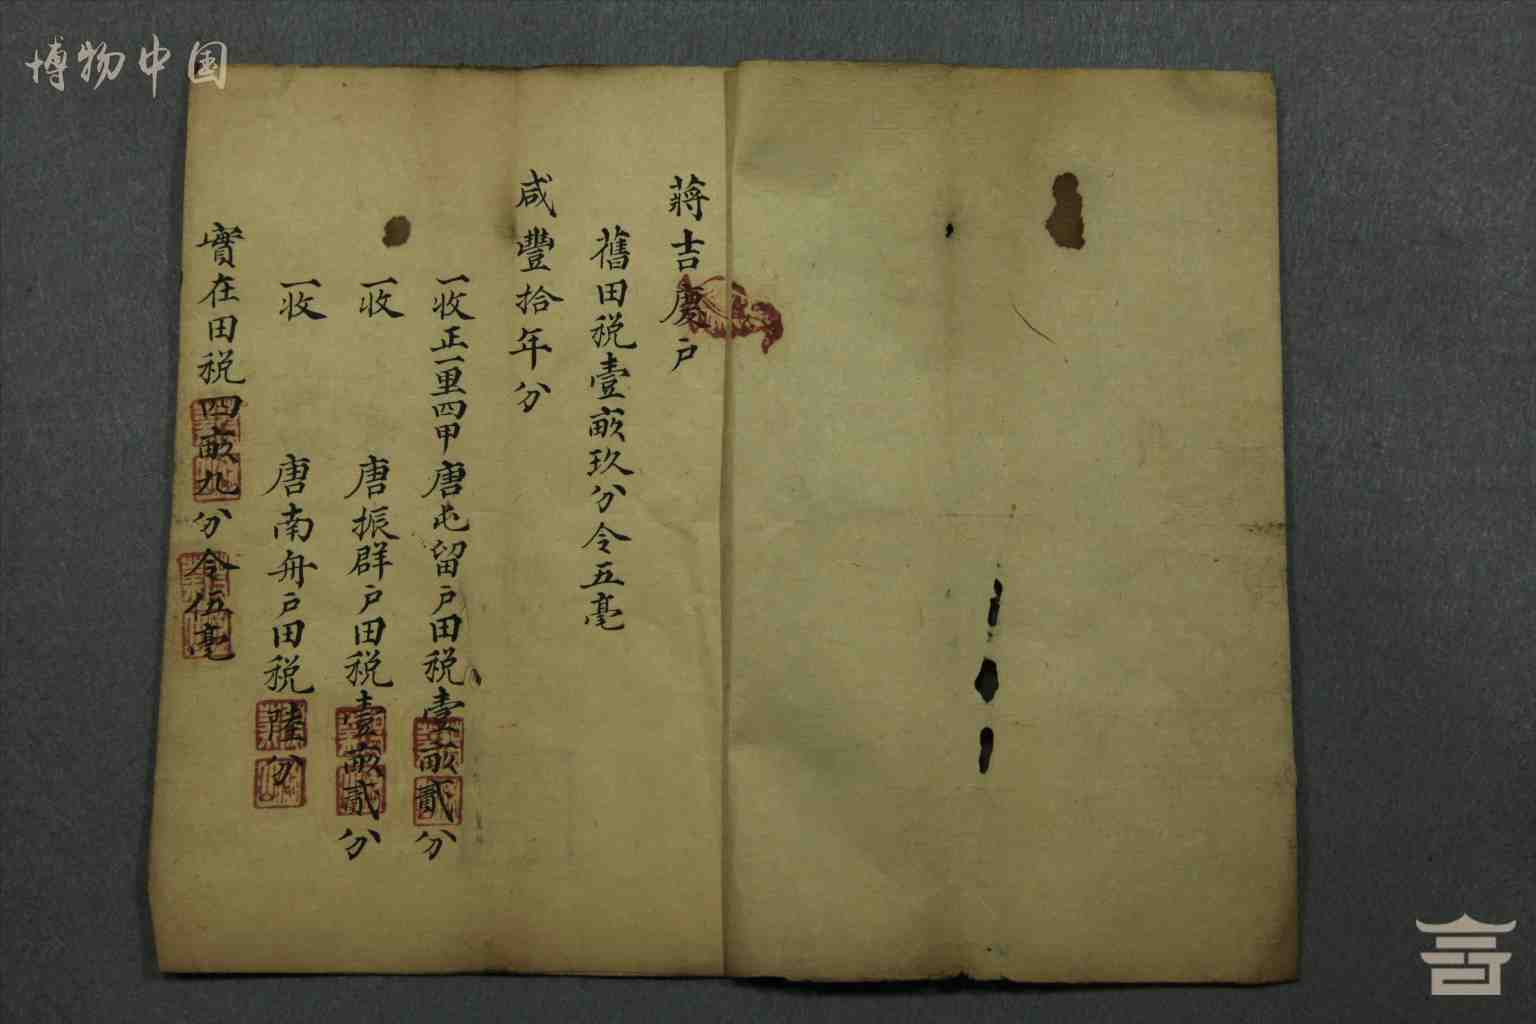 博物中国
蔣吉慶户
舊田税壹畝玖分令五毫
咸豐拾年分
一收正一里四甲唐屯留户田税壹畝貳分
一收 唐振群户田税壹畝貳分
一收 唐南舟户田税陸分
實在田税四畝九分令伍毫